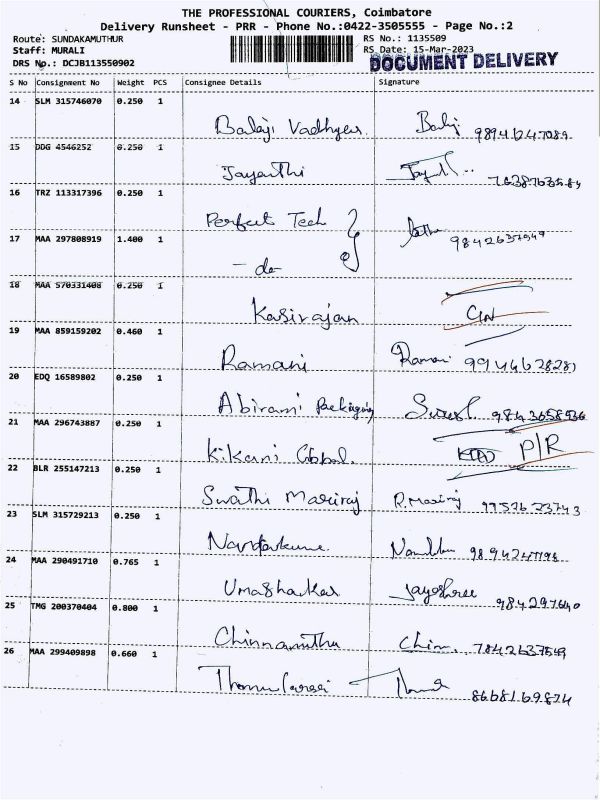 THE PROFESSIONAL COURIERS, Coimbatore
Delivery Runsheet - PRR - Phone No.:0422-3505555 - Page No.:2
Route: SUNDAKAMUTHUR
RS No.: 1135509
Staff: MURALI
RS Date: 15-Mar-2023
DRS No.: DCJB113550902
DOCUMENT DELIVERY
S No Consignment No Weight PCS Consignee Details Signature
14 SLM 315746070 0.250 1
Balaji Vadhyer Balaji
15 DDG 4546252 0.250 1
Jayanthi
16 TRZ 113317396 0.250 1
Perfect Tech
17 MAA 297808919 1.400 1
- do -
18 MAA 570331408 0.250 1
Kasirajan
19 MAA 859159202 0.460 1
Ramani Ramani 9944628281
20 EDQ 16589802 0.250 1
Abirami Packaging 9843658936
21 MAA 296743887 0.250 1
Kikani Global P/R
22 BLR 255147213 0.250 1
Swathi Mariraj R.Mariraj
23 SLM 315729213 0.250 1
Nandakumar
24 MAA 290491710 0.765 1
Umashankar Jayashree
25 TMG 200370404 0.800 1
Chinnamuthu Chin. 7842637549
26 MAA 299409898 0.660 1
8668169874